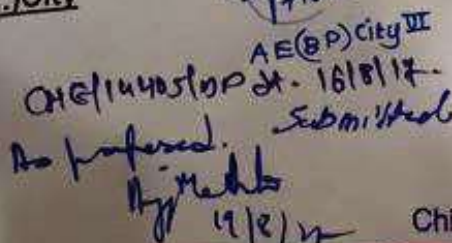 ./City
AE(BP) City VI
CHE/14405/DP dt. 16/8/17.
Submitted
As proposed.
19/8/
Chi